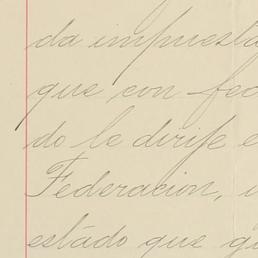 da impuesta
que con fec
do le dirije e
Federacion,
estado que g